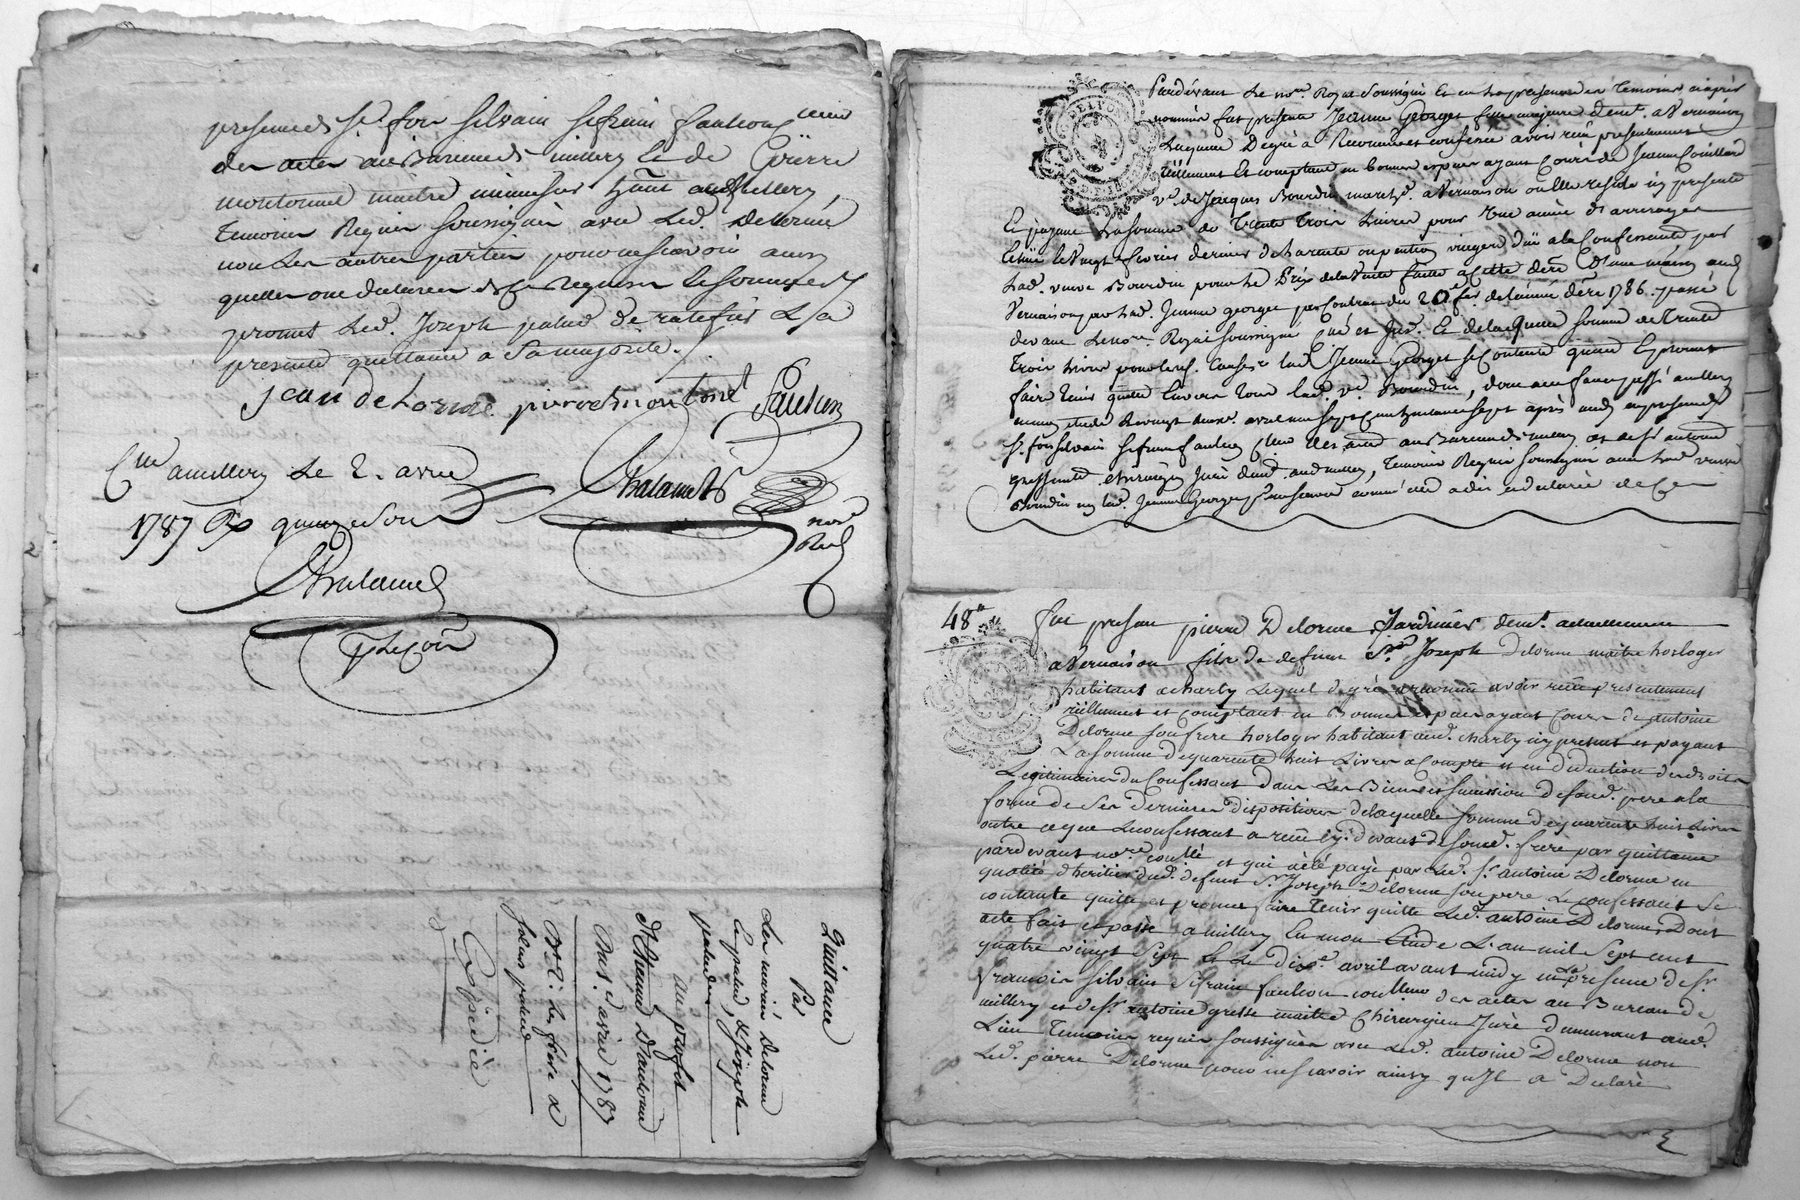 presence de Sr. foi Silvain Sifrain faulion
des actes au Bureau de millery & de Pierre
montonnet maitre menuisier hant aud. millery
Temoins Requis soussignés avec led. Delorme
non les autres parties pour ne scavoir ainsi
quelles ont declarées de ce requises & sommées
promet led. Joseph palud de ratefier la
presente quittance à sa majorité.
jean deLorme pierre montonet faulion
Cllé a millery le 2. avril
1787 Rx quinze sous
Chalamel
nore Royal
Chalamel
Quittance
Par
Les mariés Delorme
& palud, & Joseph
palud
au profit
d'Antoine
Du 1er avril 1787
Expediée
Pardevant Le nore. Royal Soussigné Et en la presence des Temoins ciaprès
nommés fut presente Jeanne Georget fille majeure demt. a Vernaison
Laquelle De gré à Reconnu et confessé avoir reçu presentement
Réellement Et comptant en bonnes especes ayant Cours de Jeanne Couillard
ve. de Jacques Bourdin marchd. a Vernaison ou Elle reside icy presente
Et payante La somme de Trente Trois Livres pour une année d'arrerages
Echüe le Vingt fevrier dernier de la rente ou pention viagere düe a la Confessante par
lad. veuve Bourdin pour le Prix de la Vente faitte a cette derre. d'une maison aud.
Vernaison par lad. Jeanne georget par Contrat du 20 fer. de l'année dere 1786. passé
devant Le nore. Royal soussigné Cllé et Jns. Et de laquelle somme de Trente
Trois Livres pour les causes lad. Jeanne Georget se contente quitte Et promet
faire Tenir quitte Envers Tous lad. ve. Bourdin, dont acte fait et passé a millery
en mon etude avril mil sept Cent quatrevingt sept après midi en presence de
Sr. foi Silvain Sifrain faulion des actes au Bureau de millery et de Sr. antoine
gresse chirurgien Juré demt. aud. millery, Temoins Requis soussignés avec lad. veuve
Bourdin non lad. Jeanne Georget pour ne scavoir comme elle a dit et declaré de ce
48e fut present pierre Delorme Jardinier demt. actuellement
a Vernaison fils de deffunt Sr. Joseph Delorme maitre horloger
habitant a charly Lequel de gré a reconnu avoir reçu presentement
réellement et comptant en Bonnes especes ayant Cours de antoine
Delorme son frere horloger habitant aud. charly icy present et payant
La somme de quarente huit Livres a Compte et en deduction des droits
Legitimaires du Confessant dans les Biens et succession de feu d. pere a la
forme de ses dernieres dispositions de laquelle somme de quarente huit Livres
outre ce que le confessant a reçu cy devant de son d. frere par quittance
pardevant nore. contlé et qui a été payé par led. Sr. antoine Delorme en
qualité d'heritier dud. defunt Sr. Joseph Delorme son pere Le confessant se
contente quitte et promet faire Tenir quitte Led. antoine Delorme, Dont
acte fait et passé a millery En mon Etude L'an mil Sept cent
quatre vingt Sept & Le dix avril avant midy en la presence de Sr.
francois Silvain Sifrain faulion contlleur des actes au Bureau de
millery et de Sr. antoine gresse maitre Chirurgien Juré demeurant aud.
Lieu Temoins requis soussignés avec Led. antoine Delorme non
Led. pierre Delorme pour ne scavoir ainsy qu'Il a Declaré